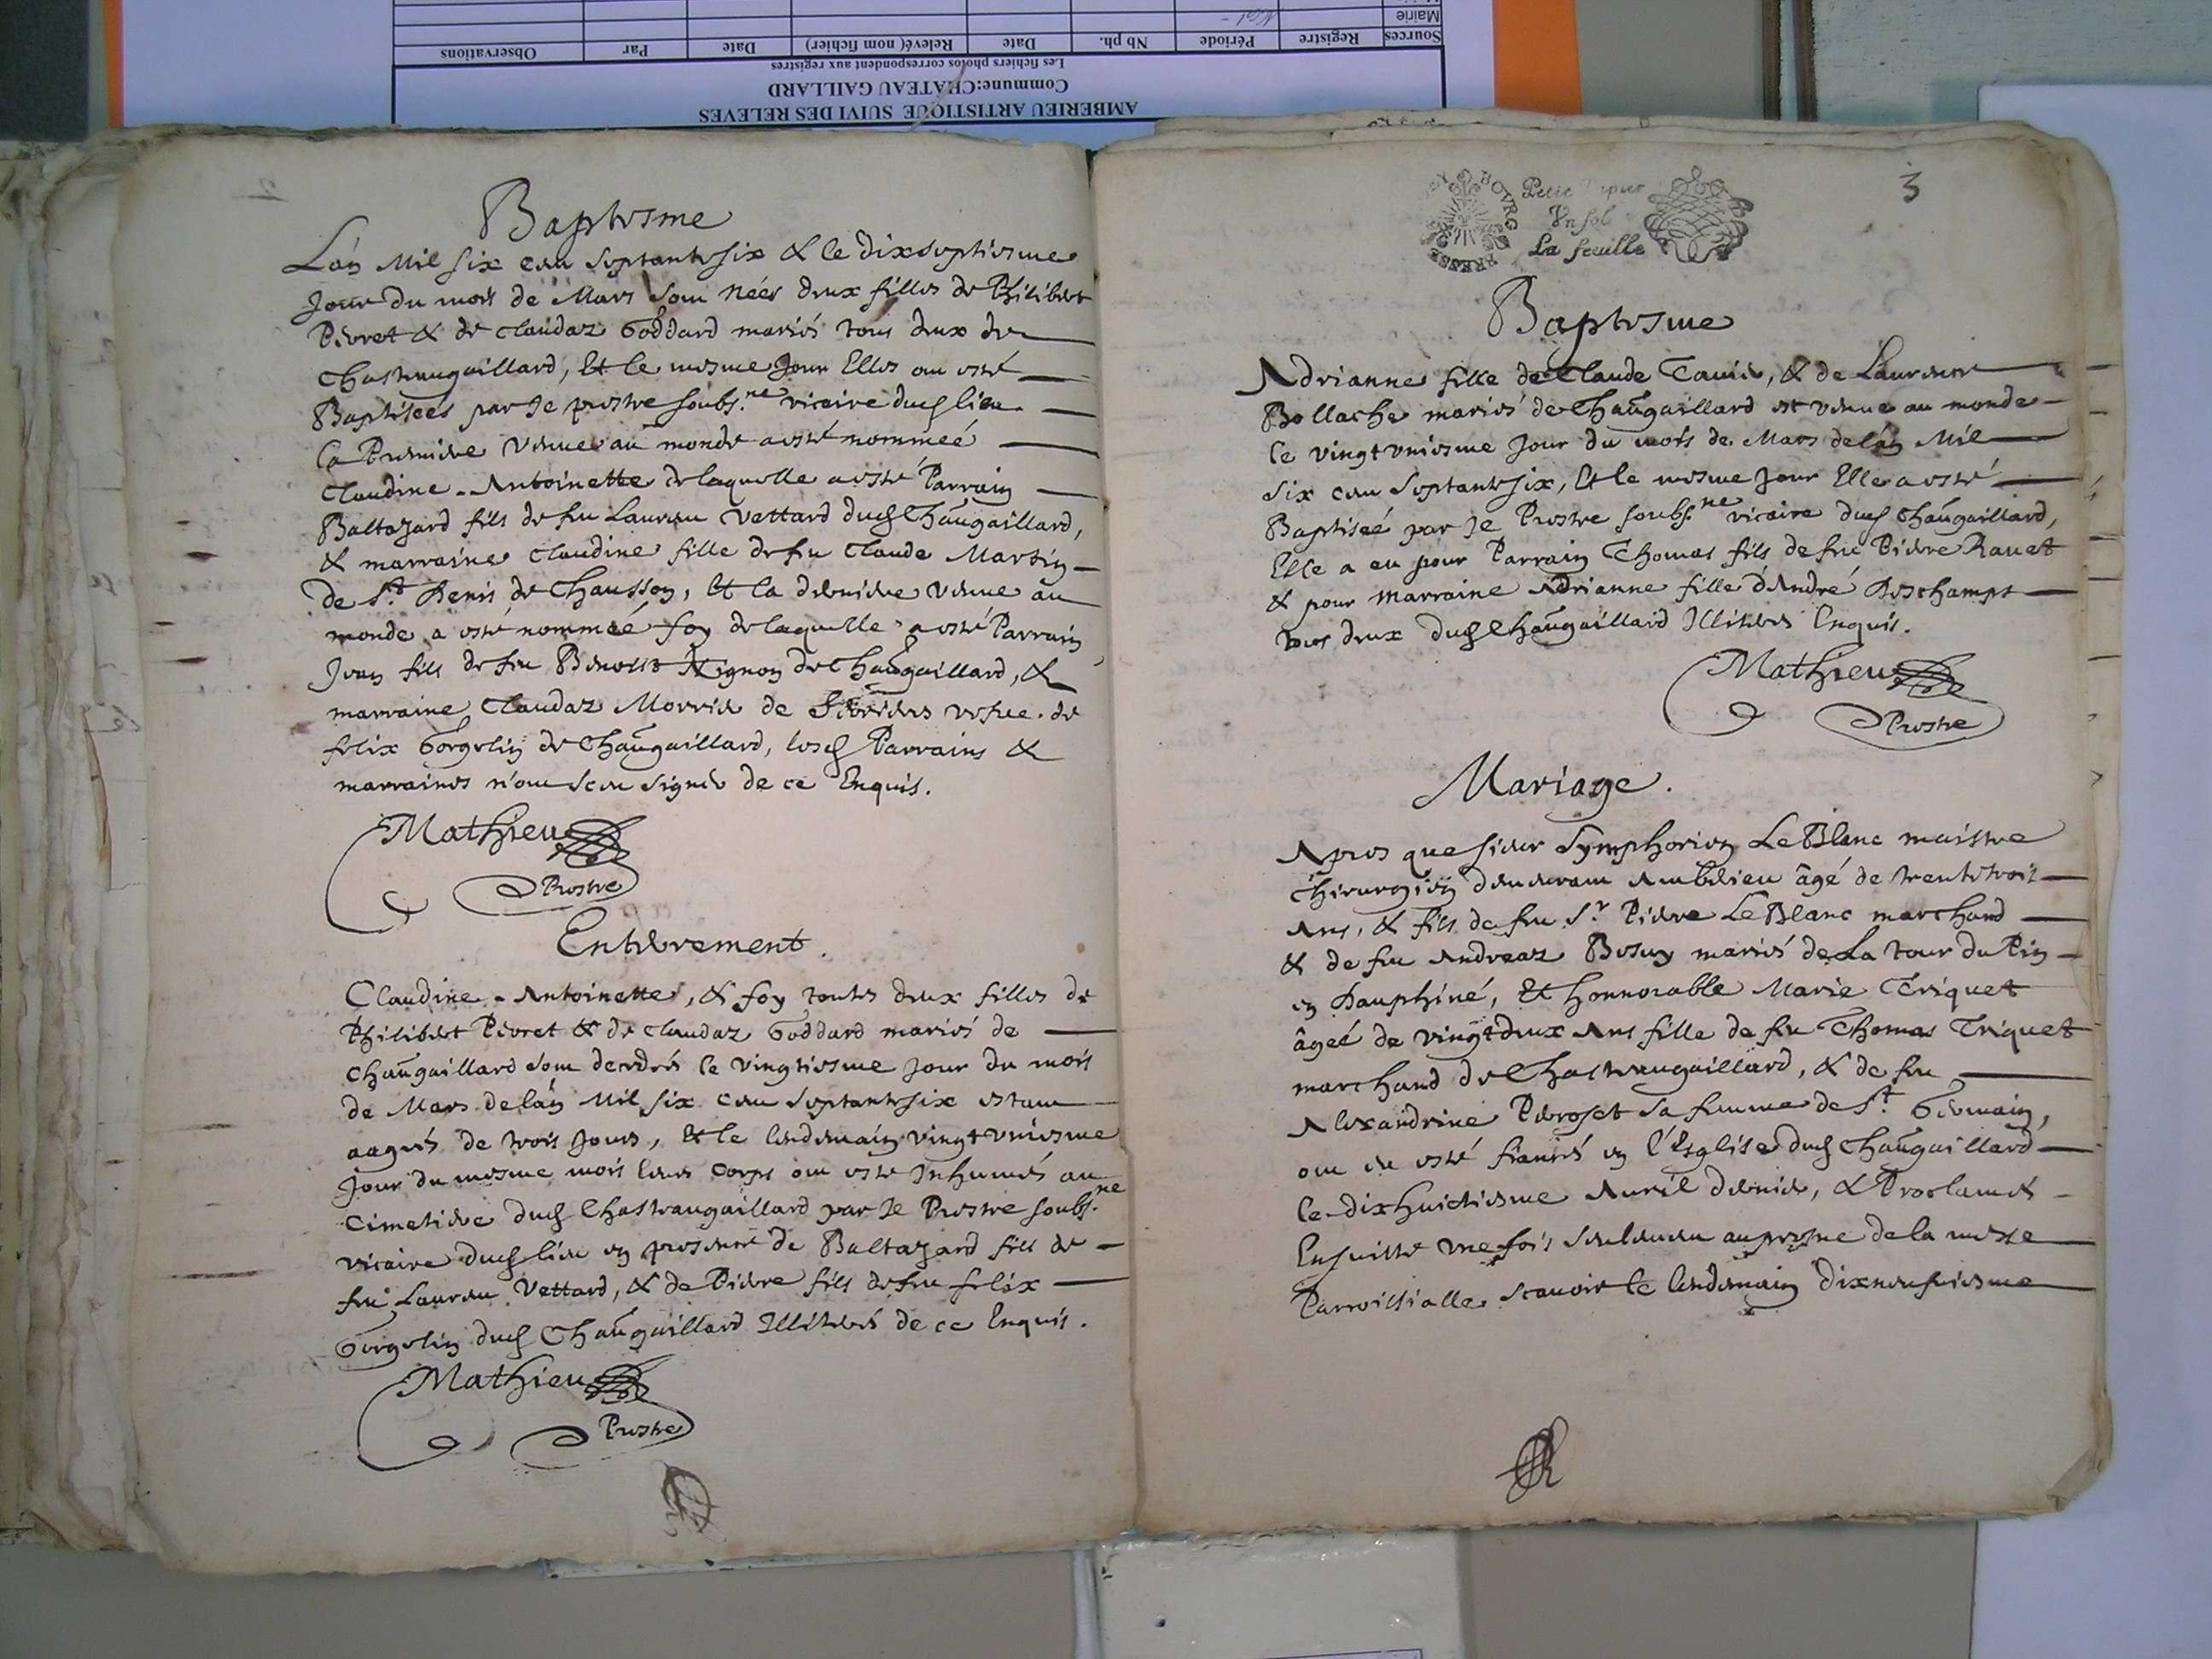 AMBERIEU ARTISTIQUE SUIVI DES RELEVES
Commune:CHATEAU GAILLARD
Les fichiers photos correspondent aux registres
Sources Registre Période Nb ph. Date Relevé( nom fichier) Date Par Observations
Mairie
2
Baptesme
L'an Mil six cent septante six & le dixseptiesme
Jour du mois de Mars sont néés deux filles de Philibert
Pivret & de Claudaz Goddard mariés tous deux de
Chasteaugaillard, Et le mesme Jour Elles ont esté
Baptiseés par Je prestre soubs.ne vicaire dud lieu
La Premiere venue au monde a esté nommeé
Claudine-Antoinette de laquelle a esté Parrain
Baltazard fils de feu Laurent Vettard dud Chaugaillard,
& marraine Claudine fille de feu Claude Martin
de St Denis de Chausson, Et la derniere venue au
monde a esté nommeé foy de laquelle a esté Parrain
Jean fils de feu Benoist Mignon de Chaugaillard, &
marraine Claudaz Morrier de vefue de
felix Gorgelin de Chaugaillard, lesd Parrains &
marraines n'ont sceu signer de ce Enquis.
Mathieu
Prestre
Enterrement.
Claudine-Antoinette, & foy toutes deux filles de
Philibert Pivret & de Claudaz Goddard mariés de
Chaugaillard sont decedeés le vingtiesme Jour du mois
de Mars de l'an Mil six cent septante six estant
aageés de trois Jours, Et le lendemain vingt vniesme
Jour du mesme mois leurs corps ont esté Inhumés au
Cimetiere dud Chasteaugaillard par Je Prestre soubs.ne
vicaire dud lieu en presence de Baltazard fils de
feu Laurent Vettard, & de Pierre fils de feu felix
Gorgelin dud Chaugaillard Illiterés de ce Enquis.
Mathieu
Prestre
3
BOVRG BRESSE
Petit Papier
Vn sol
La feuille
Baptesme
Adrianne fille de Claude Tauier, & de Laurence
Bollache mariés de Chaugaillard est venue au monde
le vingt vniesme Jour du mois de Mars de l'an Mil
six cent septante six, Et le mesme Jour Elle a esté
Baptiseé par Je Prestre soubs.ne vicaire dud Chaugaillard,
Elle a eu pour Parrain Thomas fils de feu Pierre Rauet
& pour marraine Adrianne fille d'André Deschamps
tous deux dud Chaugaillard Illiteres Enquis.
Mathieu
Prestre
Mariage.
Apres que sieur Symphorien LeBlanc maistre
Chirurgien demeurant Amberieu âgé de trente trois
Ans, & fils de feu Sr Pierre LeBlanc marchand
& de feu Andreaz mariés de La Tour du Pin
en Dauphiné, Et honnorable Marie Triquet
âgeé de vingt deux Ans fille de feu Thomas Triquet
marchand de Chasteaugaillard, & de feu
Alexandrine Peroset sa femme de St Germain,
ont eu esté fiancés en l'Esglise dud Chaugaillard
le dixhuictiesme Auril dernier, & Proclamés
Ensuitte vne fois seulement au prosne de la messe
Parroissialle scauoir le lendemain dixneufuiesme